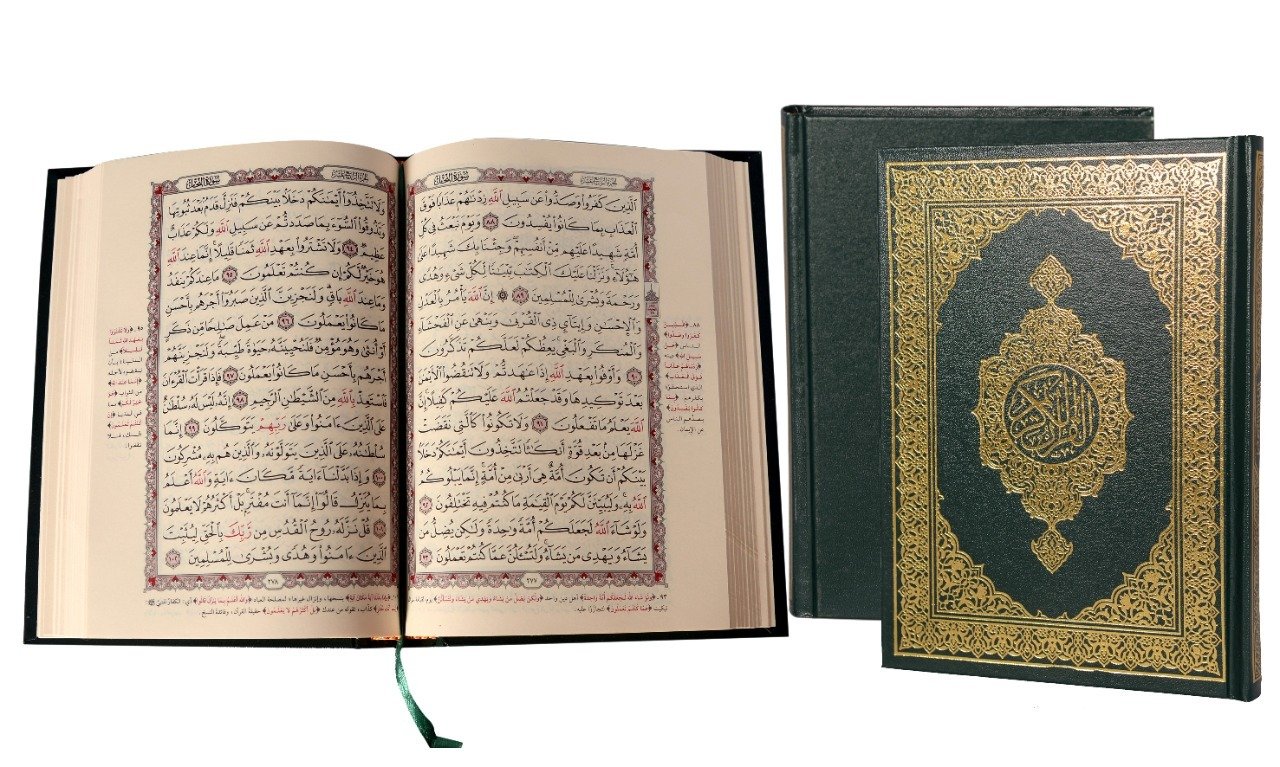 سُورَةُ النَّحْلِ
ٱلَّذِينَ كَفَرُوا۟ وَصَدُّوا۟ عَن سَبِيلِ ٱللَّهِ زِدْنَٰهُمْ عَذَابًا فَوْقَ
ٱلْعَذَابِ بِمَا كَانُوا۟ يُفْسِدُونَ ٨٨ وَيَوْمَ نَبْعَثُ فِى كُلِّ
أُمَّةٍ شَهِيدًا عَلَيْهِم مِّنْ أَنفُسِهِمْ وَجِئْنَا بِكَ شَهِيدًا عَلَىٰ
هَٰٓؤُلَآءِ وَنَزَّلْنَا عَلَيْكَ ٱلْكِتَٰبَ تِبْيَٰنًا لِّكُلِّ شَىْءٍ وَهُدًى
وَرَحْمَةً وَبُشْرَىٰ لِلْمُسْلِمِينَ ٨٩ ۞ إِنَّ ٱللَّهَ يَأْمُرُ بِٱلْعَدْلِ
وَٱلْإِحْسَٰنِ وَإِيتَآئِ ذِى ٱلْقُرْبَىٰ وَيَنْهَىٰ عَنِ ٱلْفَحْشَآءِ
وَٱلْمُنكَرِ وَٱلْبَغْىِ يَعِظُكُمْ لَعَلَّكُمْ تَذَكَّرُونَ
٩٠ وَأَوْفُوا۟ بِعَهْدِ ٱللَّهِ إِذَا عَٰهَدتُّمْ وَلَا تَنقُضُوا۟ ٱلْأَيْمَٰنَ
بَعْدَ تَوْكِيدِهَا وَقَدْ جَعَلْتُمُ ٱللَّهَ عَلَيْكُمْ كَفِيلًا إِنَّ
ٱللَّهَ يَعْلَمُ مَا تَفْعَلُونَ ٩١ وَلَا تَكُونُوا۟ كَٱلَّتِى نَقَضَتْ
غَزْلَهَا مِنۢ بَعْدِ قُوَّةٍ أَنكَٰثًا تَتَّخِذُونَ أَيْمَٰنَكُمْ دَخَلًۢا
بَيْنَكُمْ أَن تَكُونَ أُمَّةٌ هِىَ أَرْبَىٰ مِنْ أُمَّةٍ إِنَّمَا يَبْلُوكُمُ
ٱللَّهُ بِهِۦ وَلَيُبَيِّنَنَّ لَكُمْ يَوْمَ ٱلْقِيَٰمَةِ مَا كُنتُمْ فِيهِ تَخْتَلِفُونَ ٩٢
وَلَوْ شَآءَ ٱللَّهُ لَجَعَلَكُمْ أُمَّةً وَٰحِدَةً وَلَٰكِن يُضِلُّ مَن
يَشَآءُ وَيَهْدِى مَن يَشَآءُ وَلَتُسْـَٔلُنَّ عَمَّا كُنتُمْ تَعْمَلُونَ ٩٣
٢٧٧
سُورَةُ النَّحْلِ
وَلَا تَتَّخِذُوٓا۟ أَيْمَٰنَكُمْ دَخَلًۢا بَيْنَكُمْ فَتَزِلَّ قَدَمٌۢ بَعْدَ ثُبُوتِهَا
وَتَذُوقُوا۟ ٱلسُّوٓءَ بِمَا صَدَدتُّمْ عَن سَبِيلِ ٱللَّهِ وَلَكُمْ عَذَابٌ
عَظِيمٌ ٩٤ وَلَا تَشْتَرُوا۟ بِعَهْدِ ٱللَّهِ ثَمَنًا قَلِيلًا إِنَّمَا عِندَ ٱللَّهِ
هُوَ خَيْرٌ لَّكُمْ إِن كُنتُمْ تَعْلَمُونَ ٩٥ مَا عِندَكُمْ يَنفَدُ
وَمَا عِندَ ٱللَّهِ بَاقٍ وَلَنَجْزِيَنَّ ٱلَّذِينَ صَبَرُوٓا۟ أَجْرَهُم بِأَحْسَنِ
مَا كَانُوا۟ يَعْمَلُونَ ٩٦ مَنْ عَمِلَ صَٰلِحًا مِّن ذَكَرٍ
أَوْ أُنثَىٰ وَهُوَ مُؤْمِنٌ فَلَنُحْيِيَنَّهُۥ حَيَوٰةً طَيِّبَةً وَلَنَجْزِيَنَّهُمْ
أَجْرَهُم بِأَحْسَنِ مَا كَانُوا۟ يَعْمَلُونَ ٩٧ فَإِذَا قَرَأْتَ ٱلْقُرْءَانَ
فَٱسْتَعِذْ بِٱللَّهِ مِنَ ٱلشَّيْطَٰنِ ٱلرَّجِيمِ ٩٨ إِنَّهُۥ لَيْسَ لَهُۥ سُلْطَٰنٌ
عَلَى ٱلَّذِينَ ءَامَنُوا۟ وَعَلَىٰ رَبِّهِمْ يَتَوَكَّلُونَ ٩٩ إِنَّمَا
سُلْطَٰنُهُۥ عَلَى ٱلَّذِينَ يَتَوَلَّوْنَهُۥ وَٱلَّذِينَ هُم بِهِۦ مُشْرِكُونَ
١٠٠ وَإِذَا بَدَّلْنَآ ءَايَةً مَّكَانَ ءَايَةٍ وَٱللَّهُ أَعْلَمُ
بِمَا يُنَزِّلُ قَالُوٓا۟ إِنَّمَآ أَنتَ مُفْتَرٍۭ بَلْ أَكْثَرُهُمْ لَا يَعْلَمُونَ
١٠١ قُلْ نَزَّلَهُۥ رُوحُ ٱلْقُدُسِ مِن رَّبِّكَ بِٱلْحَقِّ لِيُثَبِّتَ
ٱلَّذِينَ ءَامَنُوا۟ وَهُدًى وَبُشْرَىٰ لِلْمُسْلِمِينَ ١٠٢
٢٧٨
القرآن الكريم